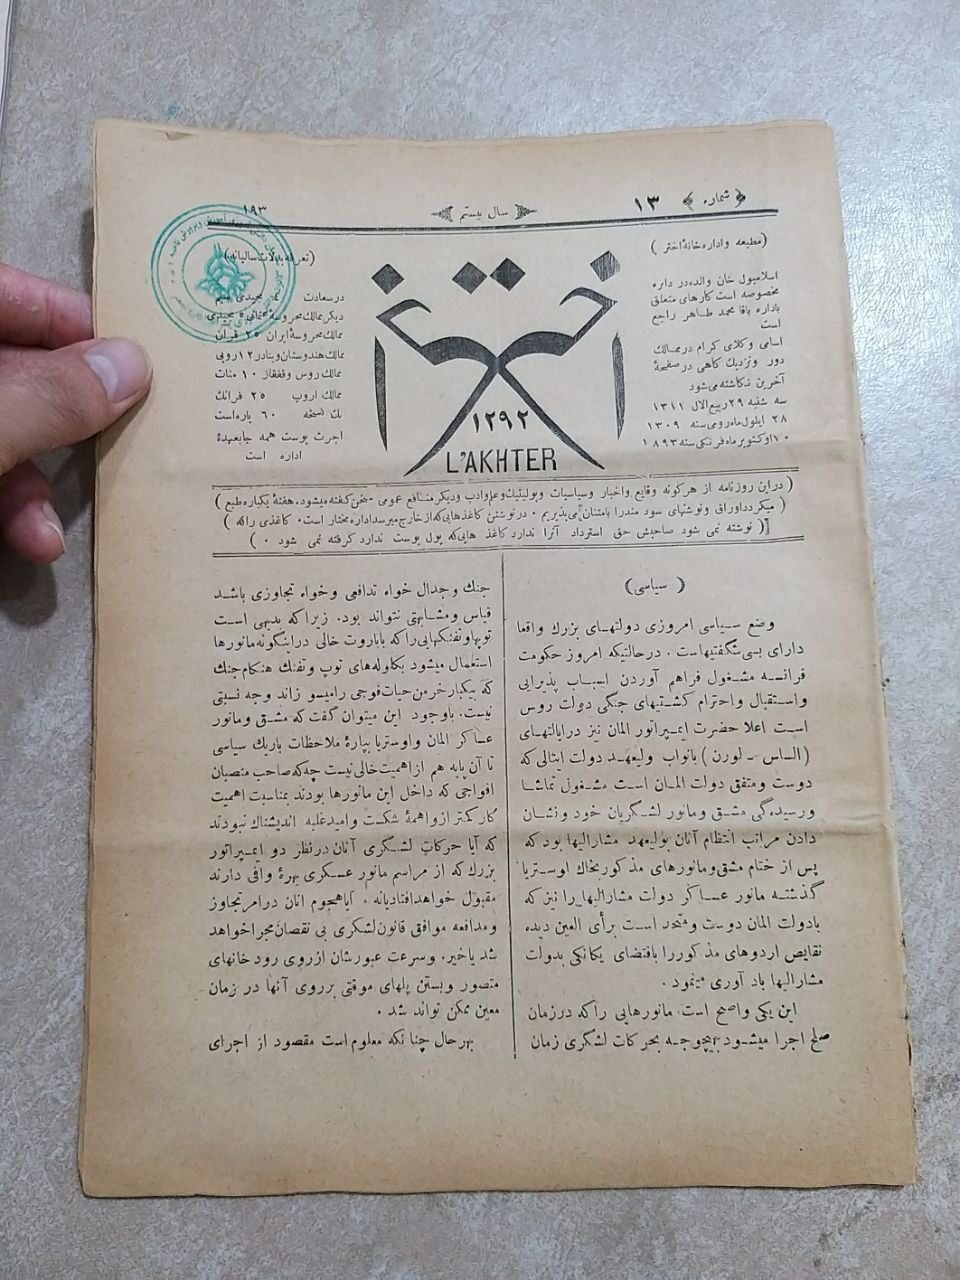 ﴿ شماره ﴾ ۱۳
سال بیستم
۱۹۳
(مطبعه و اداره خانهٔ اختر)
اسلامبول خان والده در داره
مخصوصه است کارهای متعلق
باداره باقا محمد طاهر راجع
است
اسامی وکلای کرام در ممالک
دور ونزدیك کاهی در صفحهٔ
آخرین نکاشته میشود
سه شنبه ۲۹ ربیع الاول ۱۳۱۱
۲۸ ایلول ماه رومی سنه ۱۳۰۹
۱۰ اوکتوبر ماه فرنکی سنه ۱۸۹۳
اختر
۱۲۹۲
L'AKHTER
(تعرفه بدلات سالیانه)
درسعادت ۴ مجیدی سیم
دیکر ممالك محروسهٔ عثمانی ۵ مجیدی
ممالك محروسهٔ ایران ۲۵ قران
ممالك هندوستان وبنادر ۱۲ روپی
ممالك روس وقفقاز ۱۰ منات
ممالك اروپ ۲۵ فرانك
یك نسخه ۶۰ پاره است
اجرت پوست همه جا بعهدهٔ
اداره است
(دراین روزنامه از هر کونه وقایع واخبار وسیاسیات وپولیتیك وعلم وادب ودیکر منافع عمومی سخن کفته میشود. هفتهٔ یکباره طبع)
(میکردد اوراق ونوشتهای سود مند را بامتنان می پذیریم. در نوشتن کاغذهایی که از خارج میرسد اداره مختار است. کاغذی راکه)
(نوشته نمی شود صاحبش حق استرداد آنرا ندارد کاغذ هایی که پول پوست ندارد کرفته نمی شود.)
( سیاسی )
وضع سیاسی امروزی دولتهای بزرك واقعا
دارای بسی شکفتیهاست. درحالتیکه امروز حکومت
فرانسه مشغول فراهم آوردن اسباب پذیرایی
واستقبال واحترام کشتیهای جنکی دولت روس
است اعلا حضرت ایمپراتور المان نیز درایالتهای
(الساس ـ لورن) بانواب ولیعهد دولت ایتالی که
دوست ومتفق دولت المان است مشغول تماشا
ورسیده کی مشق ومانور لشکریان خود ونشان
دادن مراتب انتظام آنان بولیعهد مشارالیها بود که
پس از ختام مشق ومانورهای مذکور بخاك اوستریا
کذشته مانور عساکر دولت مشارالیها را نیز که
بادولت المان دوست ومتحد است برأی العین دیده
نقایص اردوهای مذکور را باقتضای یکانکی بدولت
مشارالیها یاد آوری مینمود.
این یکی واضح است مانورهایی راکه در زمان
صلح اجرا میشود بهیچوجه بحرکات لشکری زمان
جنك وجدال خواه تدافعی وخواه تجاوزی باشد
قیاس ومشابهتی نتواند بود. زیراکه بدیهی است
توپها وتفنکهایی راکه باباروت خالی دراینکونه مانورها
استعمال میشود بکاوله های توپ وتفنك هنکام جنك
که بیکبار خرمن حیات فوجی رامیسوزاند وجه نسبتی
نیست. باوجود این میتوان کفت که مشق ومانور
عساکر المان واوستریا بپارهٔ ملاحظات باریك سیاسی
تا آن پایه هم از اهمیت خالی نیست چه که صاحب منصبان
افواجی که داخل این مانورها بودند بمناسبت اهمیت
کار کمتر از واهمهٔ شکست وامید غلبه اندیشناك نبودند
که آیا حرکات لشکری آنان درنظر دو ایمپراتور
بزرك که از مراسم مانور عسکری بهرهٔ وافی دارند
مقبول خواهد افتاد یانه. آیا هجوم انان درامر تجاوز
ومدافعه موافق قانون لشکری بی نقصان مجرا خواهد
شد یا خیر. وسرعت عبورشان ازروی رود خانهای
متصور وبستن پلهای موقتی برروی آنها در زمان
معین ممکن تواند شد.
بهرحال چنانکه معلوم است مقصود از اجرای